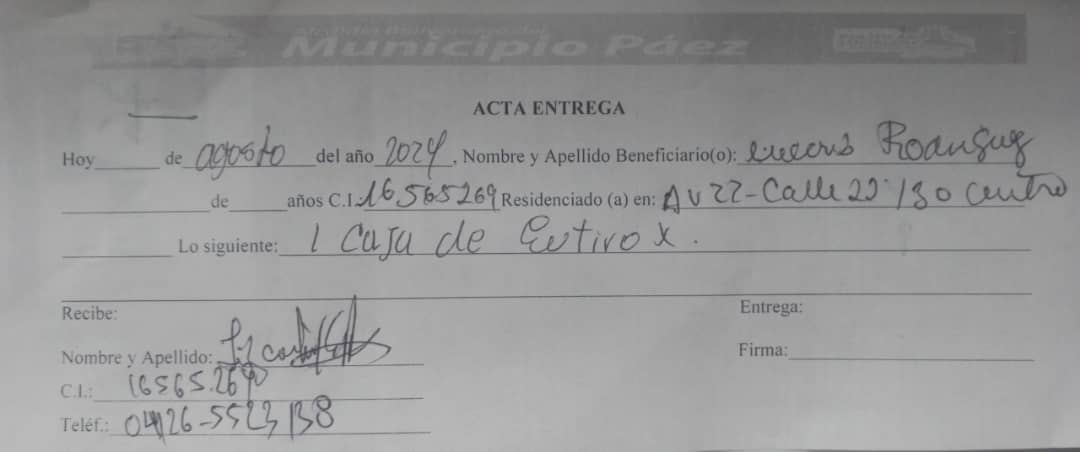 Municipio Páez
ACTA ENTREGA
Hoy de agosto del año 2024, Nombre y Apellido Beneficiario(o): Rodriguez
de años C.I. 16565269 Residenciado (a) en: AV 22-Calle 22 /30 centro
Lo siguiente: 1 Caja de Eutirox.
Recibe: Entrega:
Nombre y Apellido: Firma:
C.I.: 16565.269
Teléf.: 0426-5523138